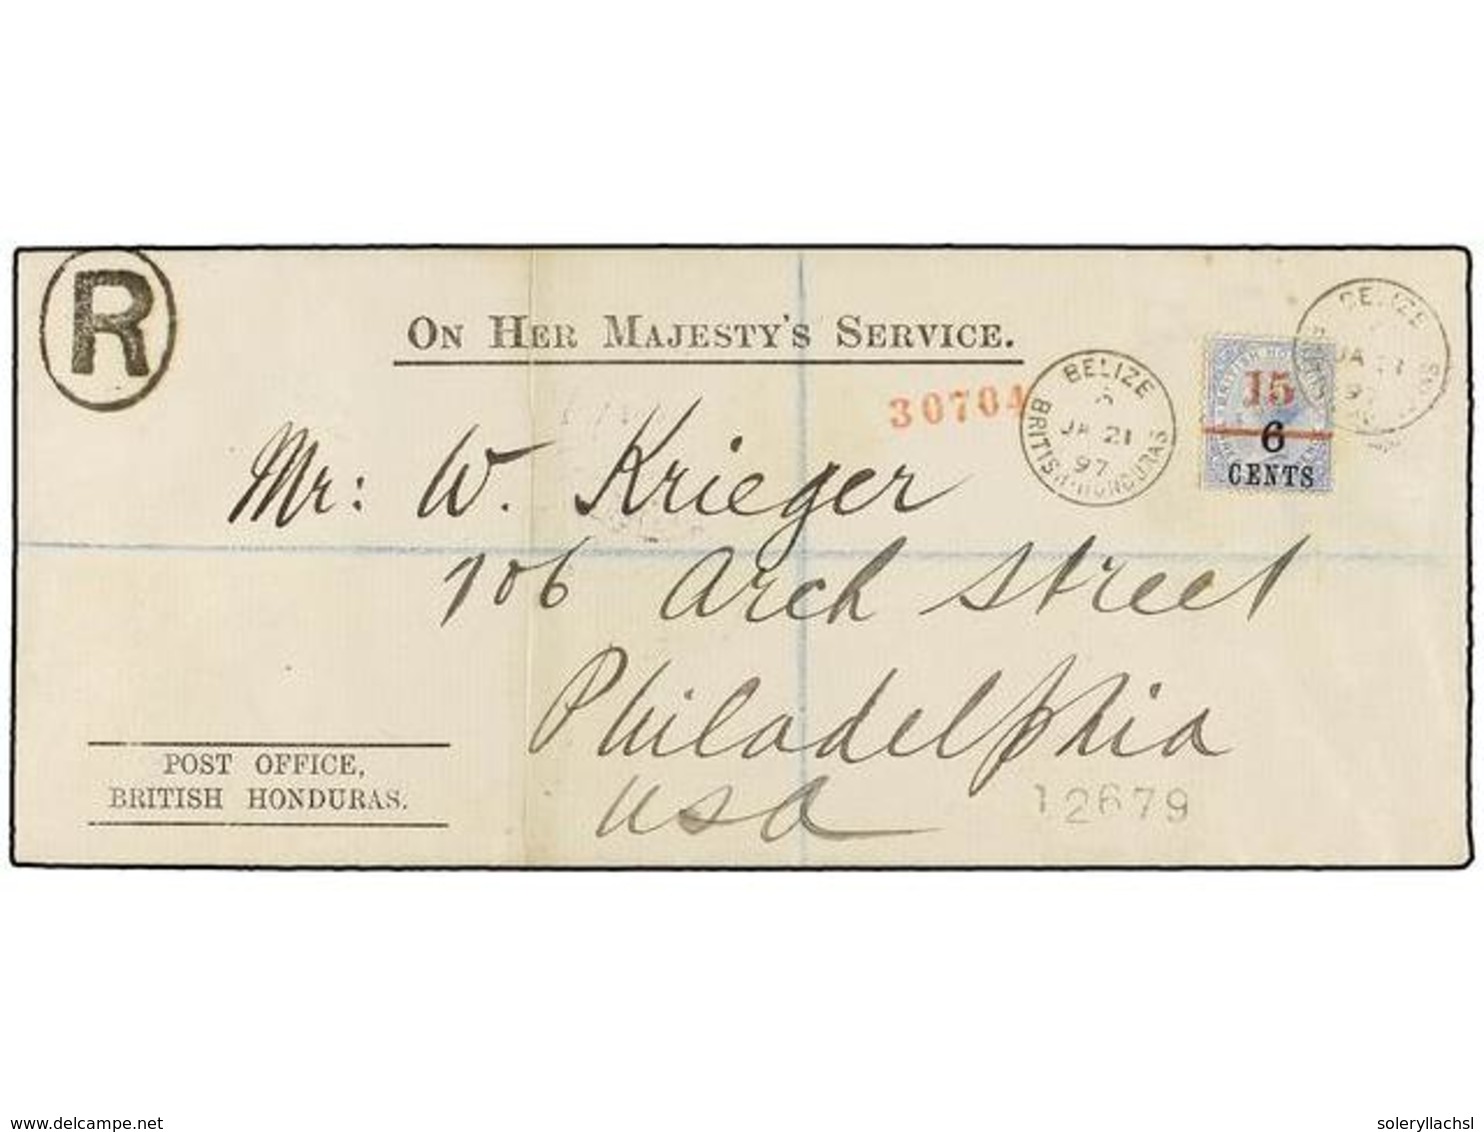 R
ON HER MAJESTY'S SERVICE.
30704
BELIZE
JA 21
97
BRITISH HONDURAS
BELIZE
JA 21
97
15
6
CENTS
Mr: W. Krieger
106 Arch Street
Philadelphia
USA
12679
POST OFFICE,
BRITISH HONDURAS.
www.delcampe.net
soleryllachsl